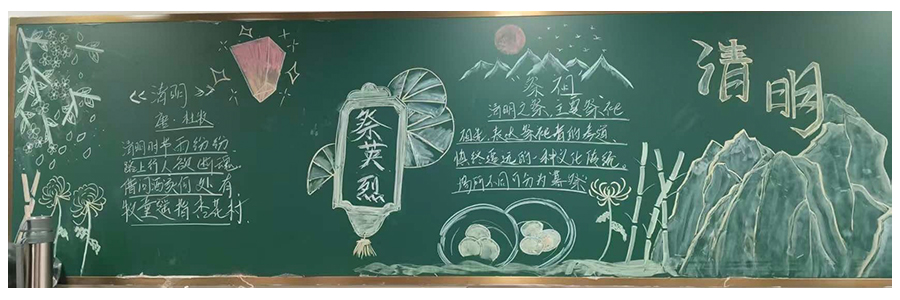 《清明》
唐·杜牧
清明时节雨纷纷
路上行人欲断魂
借问酒家何处有
牧童遥指杏花村
祭英烈
祭祖
清明之祭，主要祭祀
祖先，表达祭祀者的孝道
慎终追远的一种文化传统。
场所不同可分为墓祭
清明